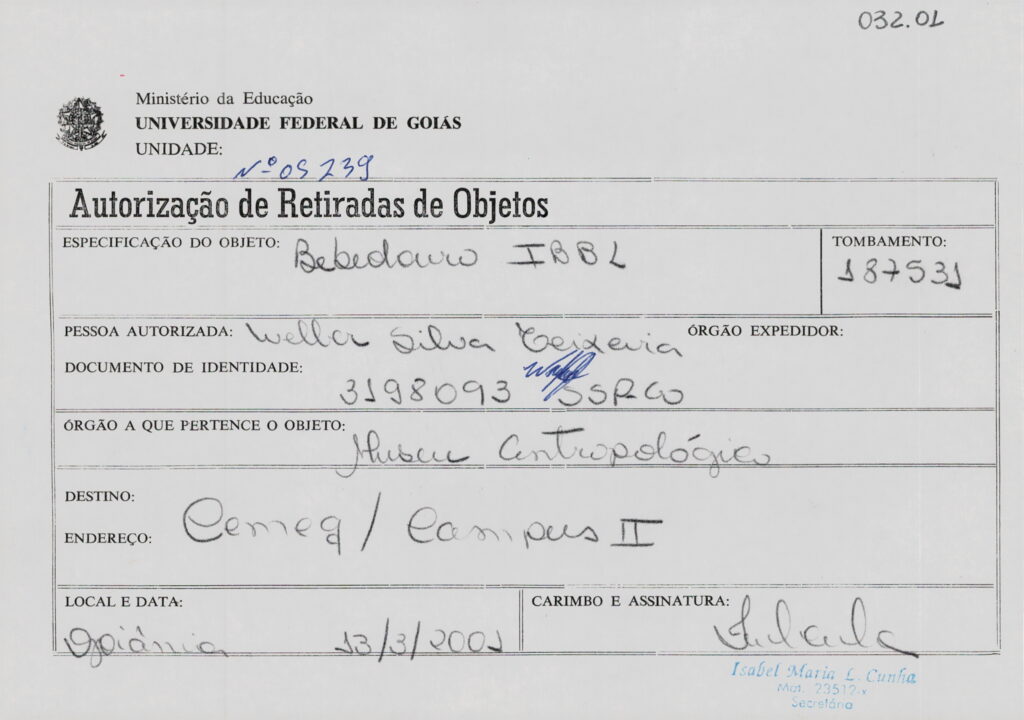 032.01
Ministério da Educação
UNIVERSIDADE FEDERAL DE GOIÁS
UNIDADE:
Nº 05 239
Autorização de Retiradas de Objetos
ESPECIFICAÇÃO DO OBJETO: Bebedouro IBBL
TOMBAMENTO:
187531
PESSOA AUTORIZADA: Weller Silva Teixeira ÓRGÃO EXPEDIDOR:
DOCUMENTO DE IDENTIDADE:
3198093
ÓRGÃO A QUE PERTENCE O OBJETO: Museu Antropológico
DESTINO:
ENDEREÇO: Cemeq / Campus II
LOCAL E DATA:
Goiânia 13/3/2001
CARIMBO E ASSINATURA:
Isabel Maria L. Cunha
Mat. 23512-x
Secretária